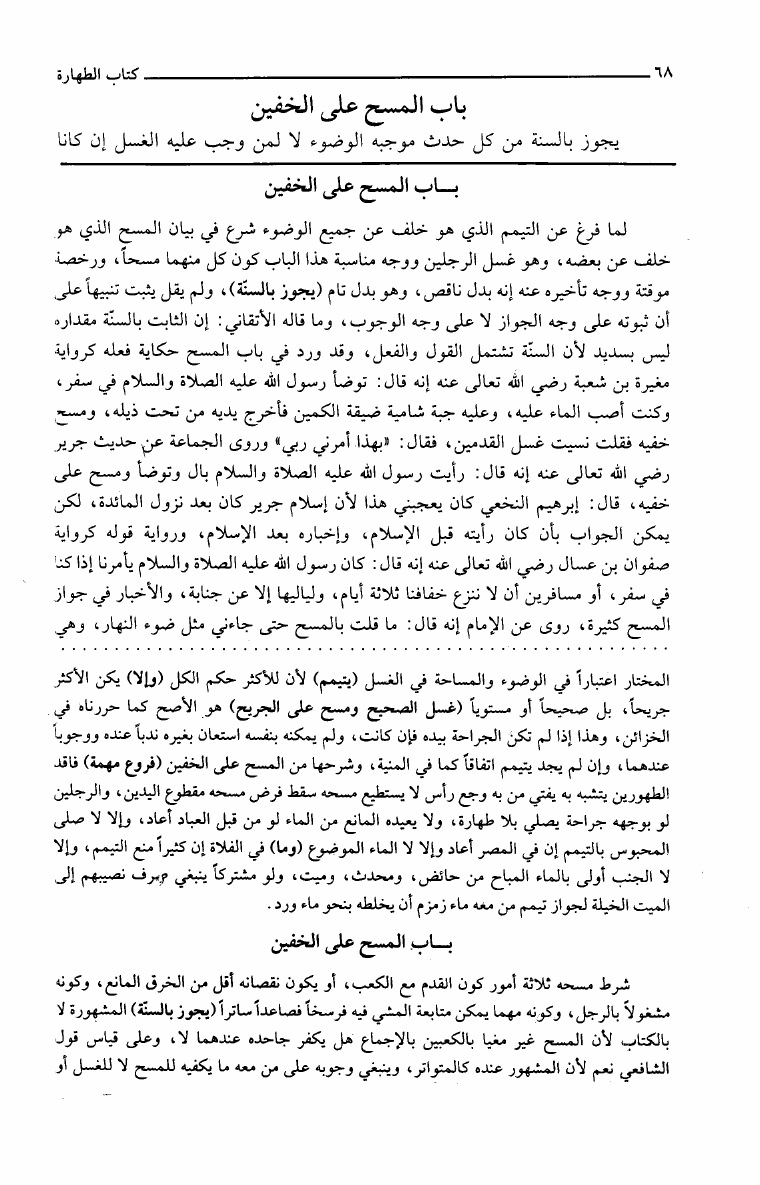 ٦٨ كتاب الطهارة
باب المسح على الخفين
يجوز بالسنة من كل حدث موجبه الوضوء لا لمن وجب عليه الغسل إن كانا
بـاب المسح على الخفين
لما فرغ عن التيمم الذي هو خلف عن جميع الوضوء شرع في بيان المسح الذي هو
خلف عن بعضه، وهو غسل الرجلين ووجه مناسبة هذا الباب كون كل منهما مسحاً، ورخصة
موقتة ووجه تأخيره عنه إنه بدل ناقص، وهو بدل تام (يجوز بالسنّة)، ولم يقل يثبت تنبيهاً على
أن ثبوته على وجه الجواز لا على وجه الوجوب، وما قاله الأتقاني: إن الثابت بالسنّة مقداره
ليس بسديد لأن السنّة تشتمل القول والفعل، وقد ورد في باب المسح حكاية فعله كرواية
مغيرة بن شعبة رضي الله تعالى عنه إنه قال: توضأ رسول الله عليه الصلاة والسلام في سفر،
وكنت أصب الماء عليه، وعليه جبة شامية ضيقة الكمين فأخرج يديه من تحت ذيله، ومسح
خفيه فقلت نسيت غسل القدمين، فقال: «بهذا أمرني ربي» وروى الجماعة عن حديث جرير
رضي الله تعالى عنه إنه قال: رأيت رسول الله عليه الصلاة والسلام بال وتوضأ ومسح على
خفيه، قال: إبرهيم النخعي كان يعجبني هذا لأن إسلام جرير كان بعد نزول المائدة، لكن
يمكن الجواب بأن كان رأيته قبل الإسلام، وإخباره بعد الإسلام، ورواية قوله كرواية
صفوان بن عسال رضي الله تعالى عنه إنه قال: كان رسول الله عليه الصلاة والسلام يأمرنا إذا كنا
في سفر، أو مسافرين أن لا ننزع خفافنا ثلاثة أيام، ولياليها إلا عن جنابة، والأخبار في جواز
المسح كثيرة، روى عن الإمام إنه قال: ما قلت بالمسح حتى جاءني مثل ضوء النهار، وهي
المختار اعتباراً في الوضوء والمساحة في الغسل (يتيمم) لأن للأكثر حكم الكل (وإلا) يكن الأكثر
جريحاً، بل صحيحاً أو مستوياً (غسل الصحيح ومسح على الجريح) هو الأصح كما حررناه في
الخزائن، وهذا إذا لم تكن الجراحة بيده فإن كانت، ولم يمكنه بنفسه استعان بغيره ندباً عنده ووجوباً
عندهما، وإن لم يجد يتيمم اتفاقاً كما في المنية، وشرحها من المسح على الخفين (فروع مهمة) فاقد
الطهورين يتشبه به يفتي من به وجع رأس لا يستطيع مسحه سقط فرض مسحه مقطوع اليدين، والرجلين
لو بوجهه جراحة يصلي بلا طهارة، ولا يعيده المانع من الماء لو من قبل العباد أعاد، وإلا لا صلى
المحبوس بالتيمم إن في المصر أعاد وإلا لا الماء الموضوع (وما) في الفلاة إن كثيراً منع التيمم، وإلا
لا الجنب أولى بالماء المباح من حائض، ومحدث، وميت، ولو مشتركاً ينبغي صرف نصيبهم إلى
الميت الخيلة لجواز تيمم من معه ماء زمزم أن يخلطه بنحو ماء ورد.
بـاب المسح على الخفين
شرط مسحه ثلاثة أمور كون القدم مع الكعب، أو يكون نقصانه أقل من الخرق المانع، وكونه
مشغولاً بالرجل، وكونه مهما يمكن متابعة المشي فيه فرسخاً فصاعداً ساتراً (يجوز بالسنّة) المشهورة لا
بالكتاب لأن المسح غير مغيا بالكعبين بالإجماع هل يكفر جاحده عندهما لا، وعلى قياس قول
الشافعي نعم لأن المشهور عنده كالمتواتر، وينبغي وجوبه على من معه ما يكفيه للمسح لا للغسل أو